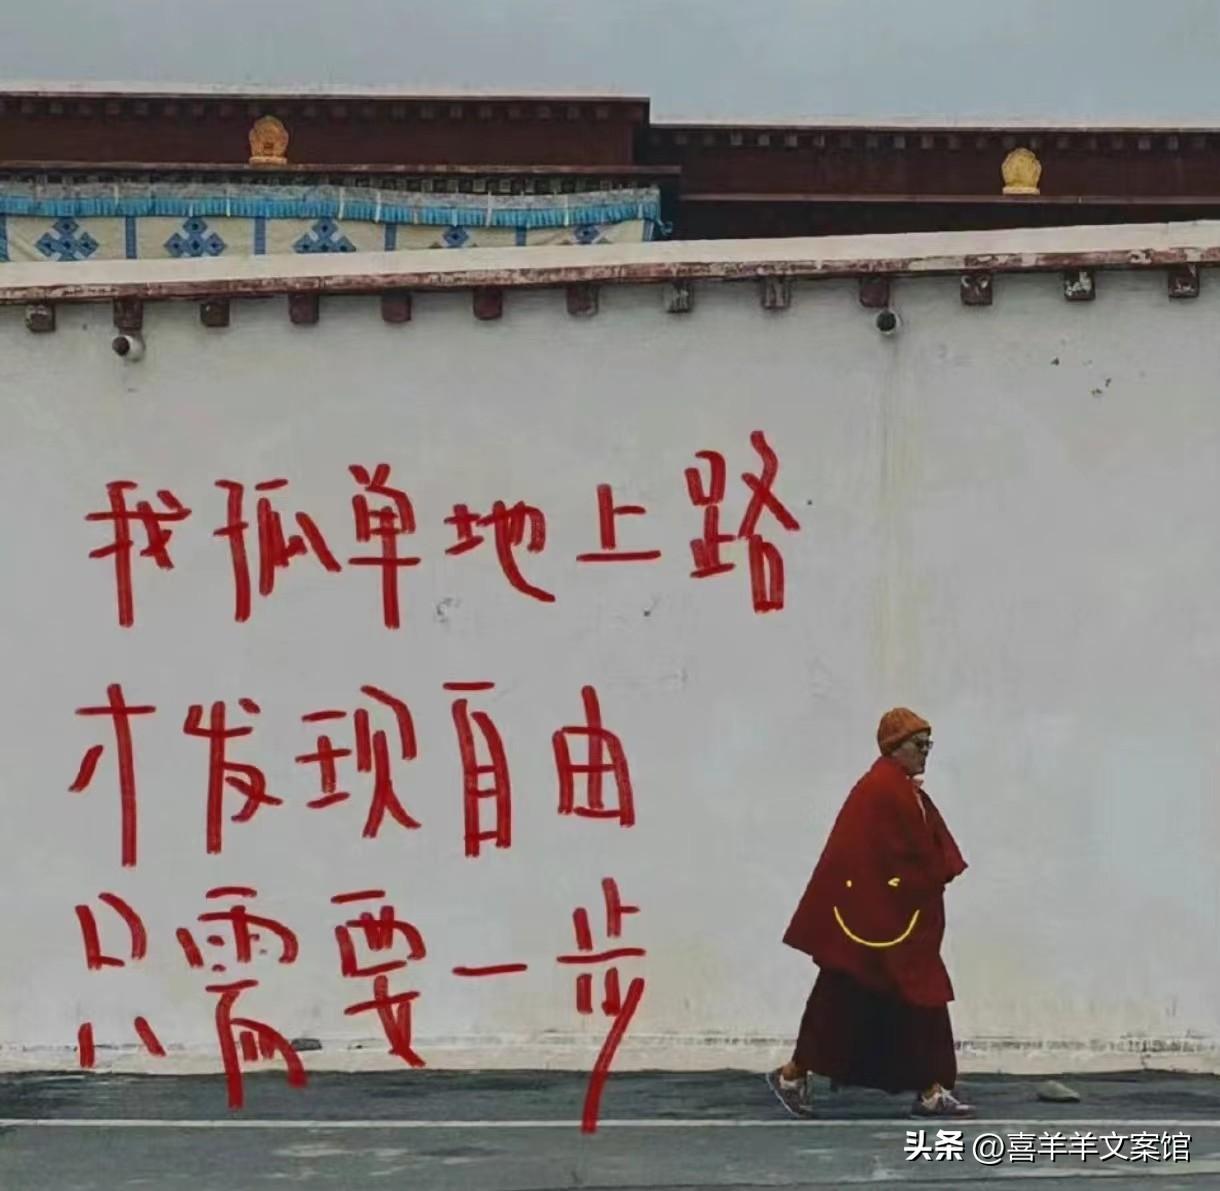 我孤单地上路
才发现自由
只需要一步
头条 @喜羊羊文案馆